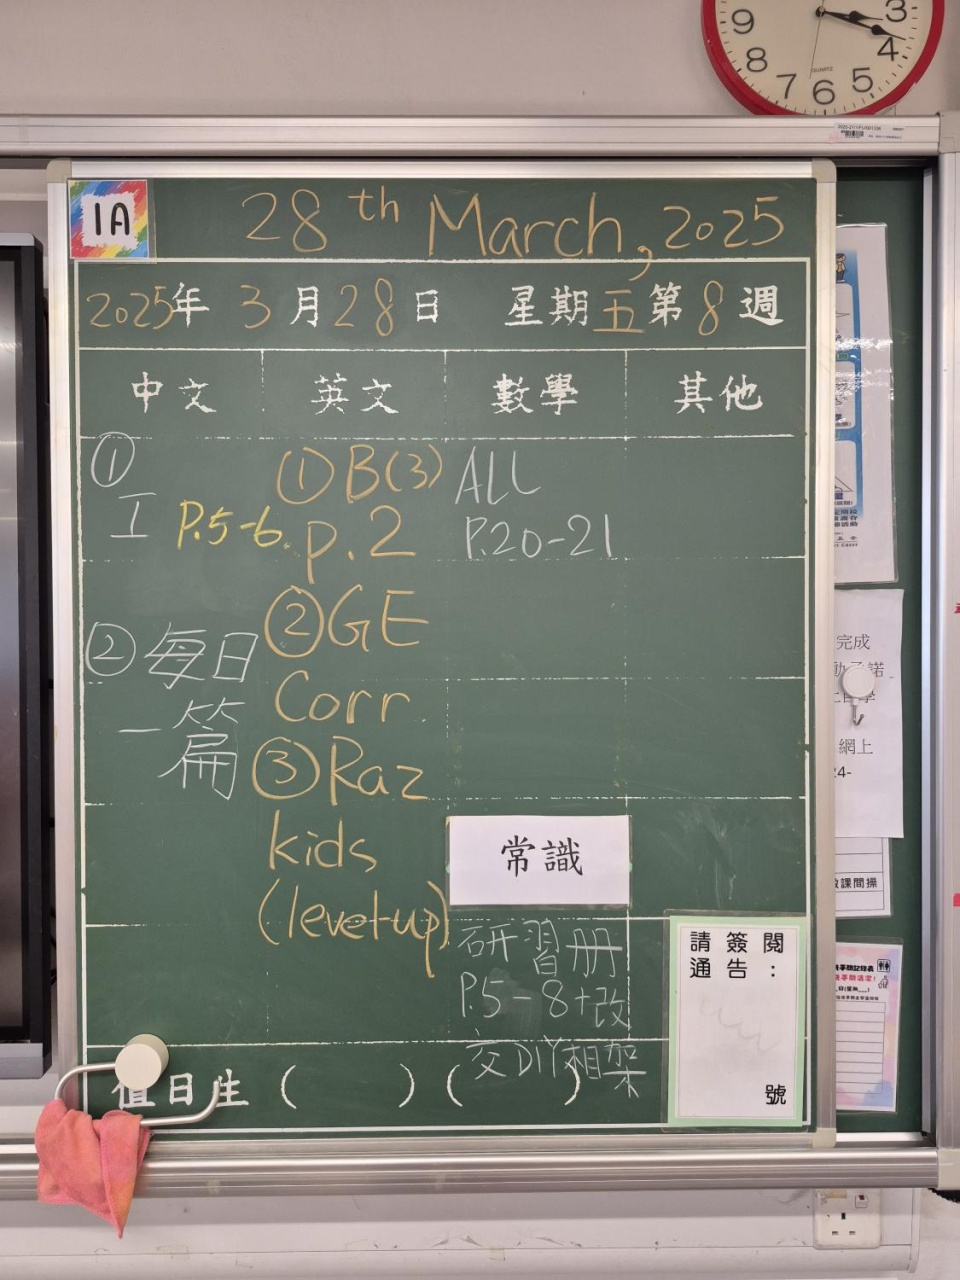 9
8
7
6
5
4
3
QUARTZ
1A
28th March, 2025
2025年 3月28日 星期五第8週
中文 英文 數學 其他
① I P.5-6
② 每日
一篇
① B(3)
p.2
② GE
Corr.
③ Raz
kids
(level-up)
ALL
P.20-21
常識
研習冊
P.5-8+改
交DIY相架
值日生 ( ) ( )
請簽閱
通告:
號
完成
網上
24-
課間操